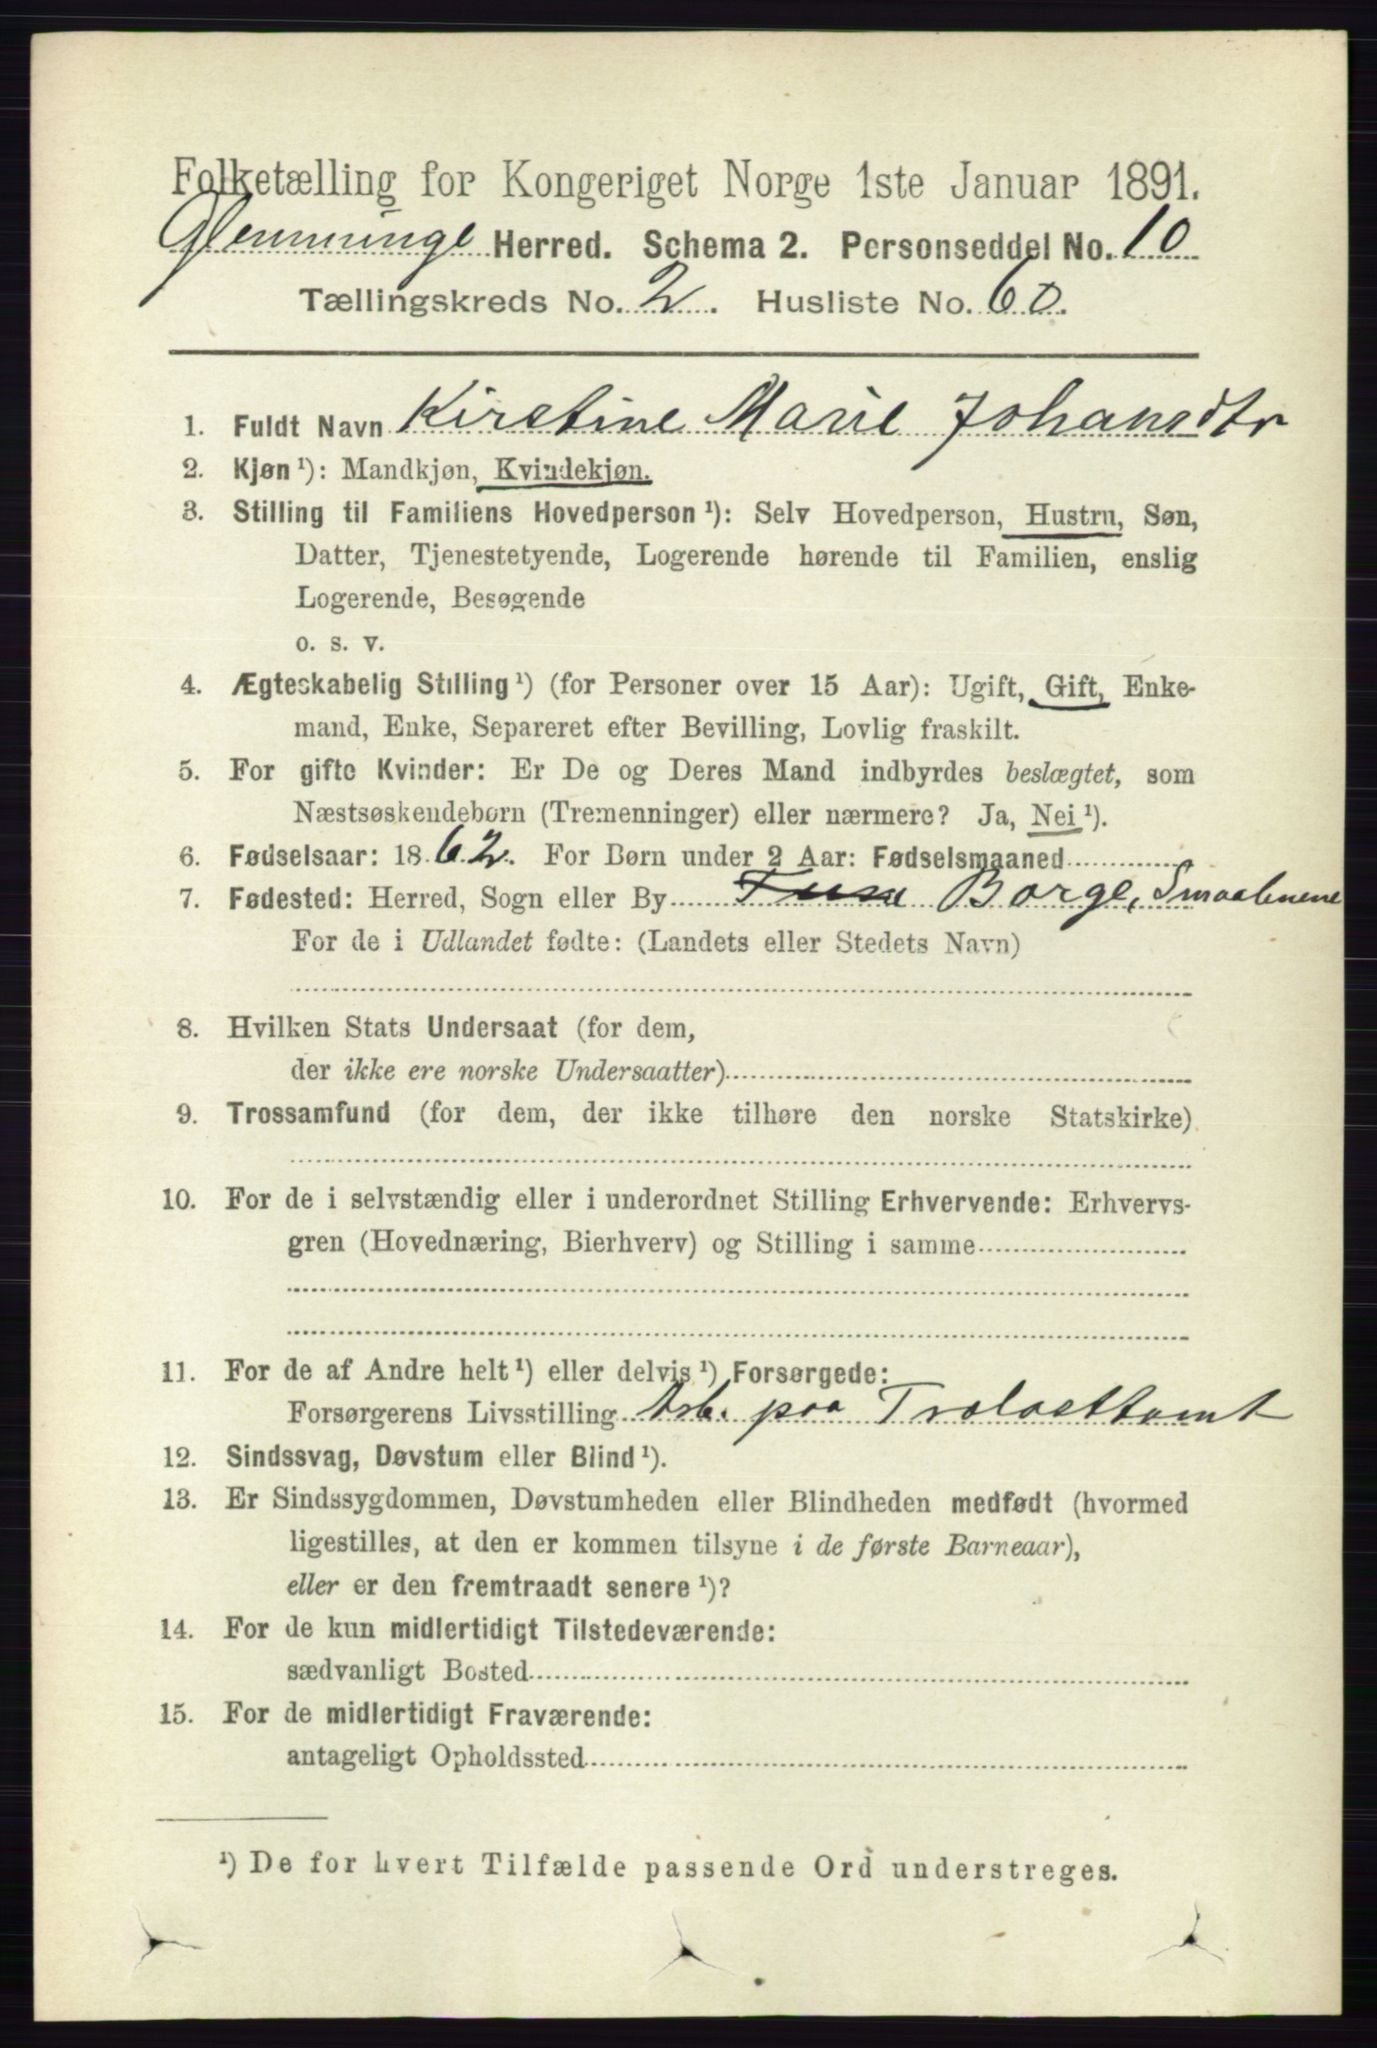 Folketælling for Kongeriget Norge 1ste Januar 1891.
Glemminge Herred. Schema 2. Personseddel No. 10
Tællingskreds No. 2. Husliste No. 60.
1. Fuldt Navn Kirstine Marie Johansdtr
2. Kjøn ¹): Mandkjøn, Kvindekjøn.
3. Stilling til Familiens Hovedperson ¹): Selv Hovedperson, Hustru, Søn,
Datter, Tjenestetyende, Logerende hørende til Familien, enslig
Logerende, Besøgende
o. s. v.
4. Ægteskabelig Stilling ¹) (for Personer over 15 Aar): Ugift, Gift, Enke-
mand, Enke, Separeret efter Bevilling, Lovlig fraskilt.
5. For gifte Kvinder: Er De og Deres Mand indbyrdes beslægtet, som
Næstsøskendebørn (Tremenninger) eller nærmere? Ja, Nei ¹).
6. Fødselsaar: 1862. For Børn under 2 Aar: Fødselsmaaned
7. Fødested: Herred, Sogn eller By Borge, Smaalenene
For de i Udlandet fødte: (Landets eller Stedets Navn)
8. Hvilken Stats Undersaat (for dem,
der ikke ere norske Undersaatter)
9. Trossamfund (for dem, der ikke tilhøre den norske Statskirke)
10. For de i selvstændig eller i underordnet Stilling Erhvervende: Erhvervs-
gren (Hovednæring, Bierhverv) og Stilling i samme
11. For de af Andre helt ¹) eller delvis ¹) Forsørgede:
Forsørgerens Livsstilling Arb. paa Trælasttomt
12. Sindssvag, Døvstum eller Blind ¹).
13. Er Sindssygdommen, Døvstumheden eller Blindheden medfødt (hvormed
ligestilles, at den er kommen tilsyne i de første Barneaar),
eller er den fremtraadt senere ¹)?
14. For de kun midlertidigt Tilstedeværende:
sædvanligt Bosted
15. For de midlertidigt Fraværende:
antageligt Opholdssted
¹) De for hvert Tilfælde passende Ord understreges.